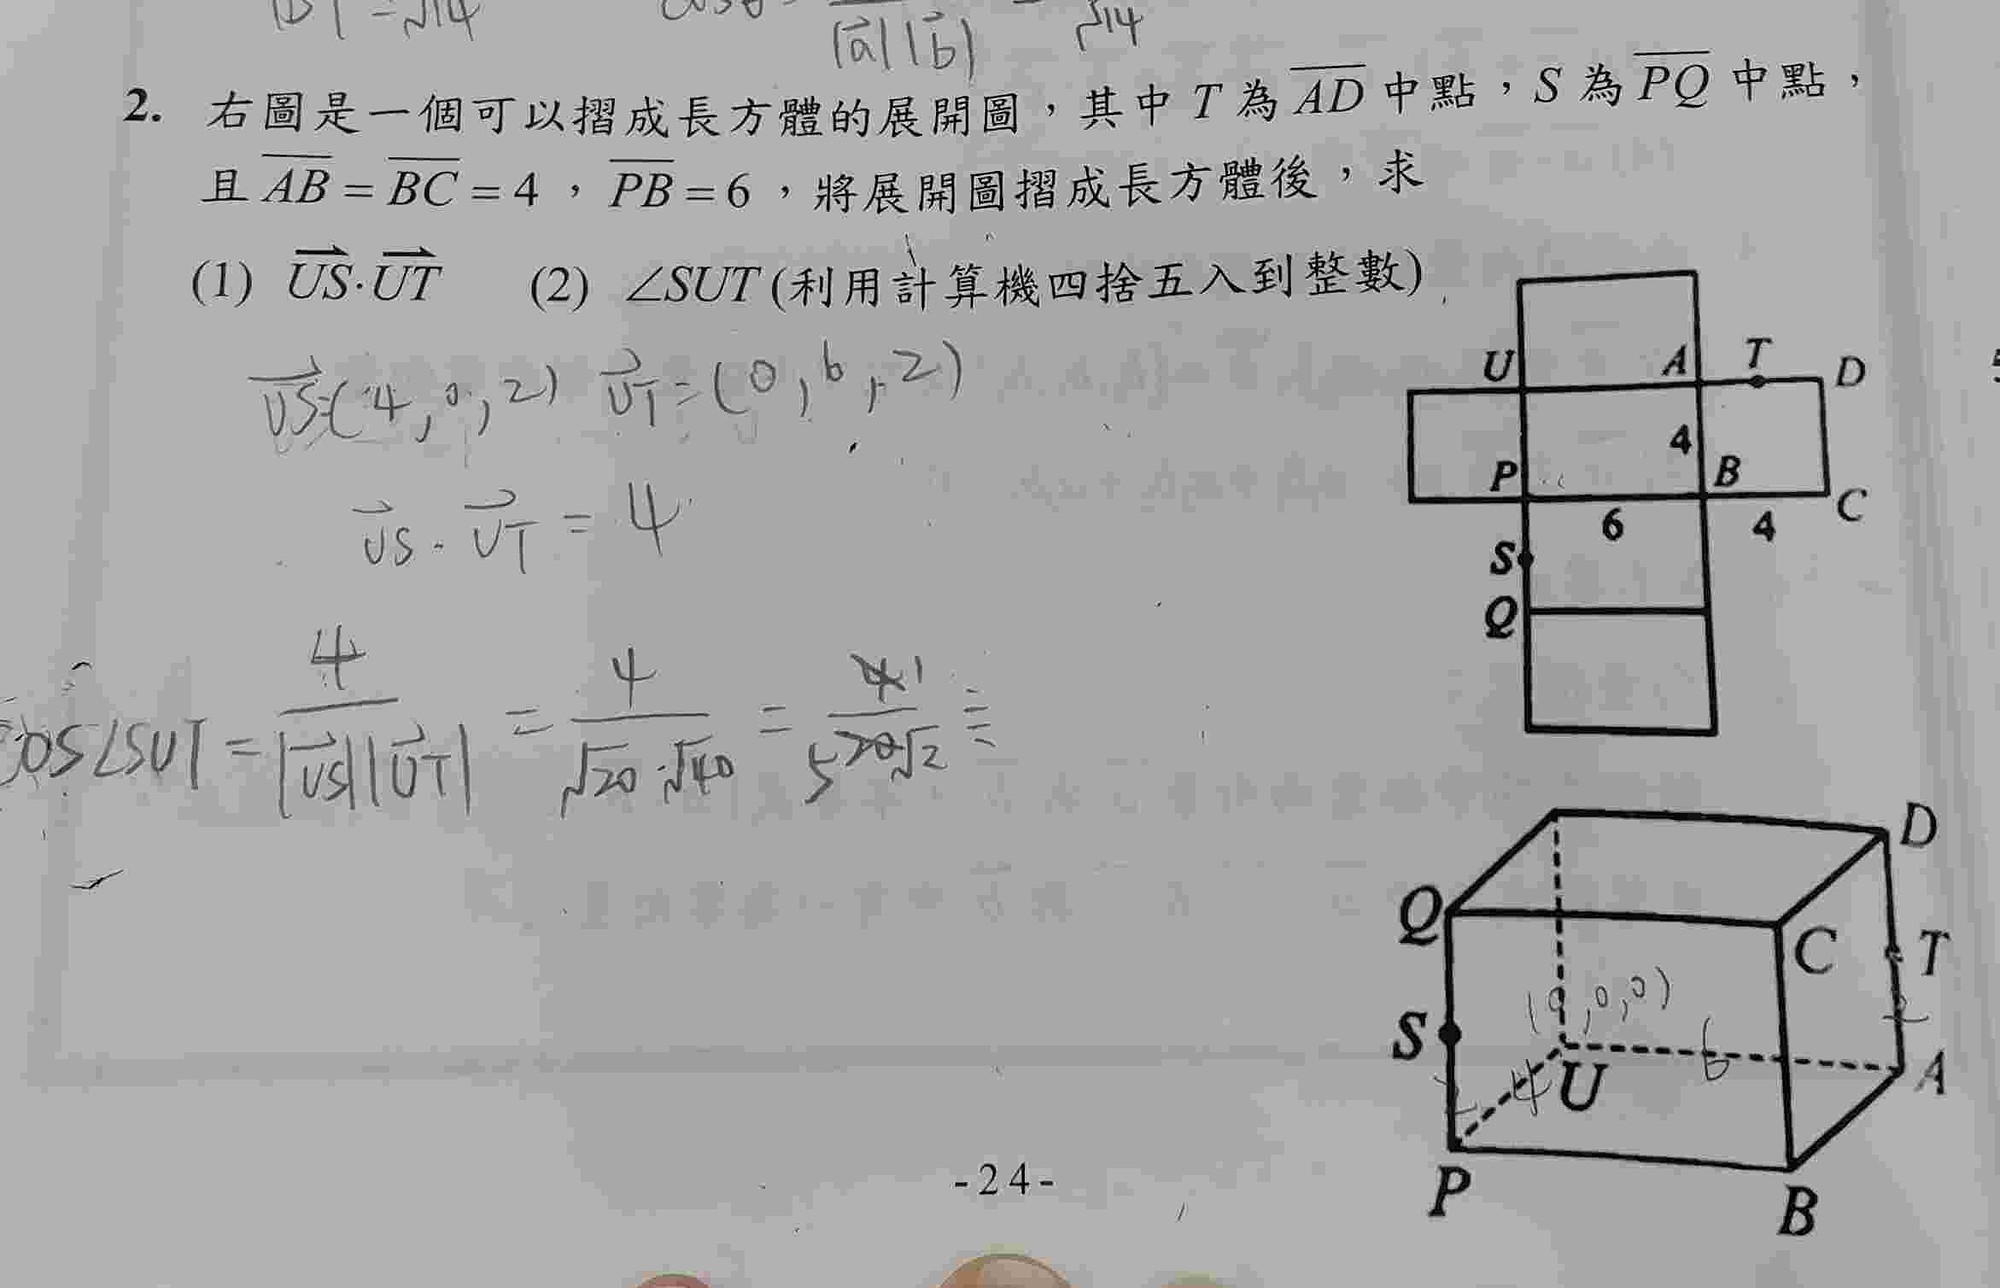 |b| = √14 cosθ = |a||b| = √14
2. 右圖是一個可以摺成長方體的展開圖，其中 T 為 AD 中點，S 為 PQ 中點，
且 AB = BC = 4 ， PB = 6 ，將展開圖摺成長方體後，求
(1) US·UT (2) ∠SUT (利用計算機四捨五入到整數)
US=(4,0,2) UT=(0,6,2)
US·UT = 4
cos∠SUT = 4/|US||UT| = 4/√20·√40 = 1/5√2 ≡
U A T D
4
P B C
6 4
S
Q
D
Q C T
(0,0,0)
2
S 6
4 U A
2
P B
-24-